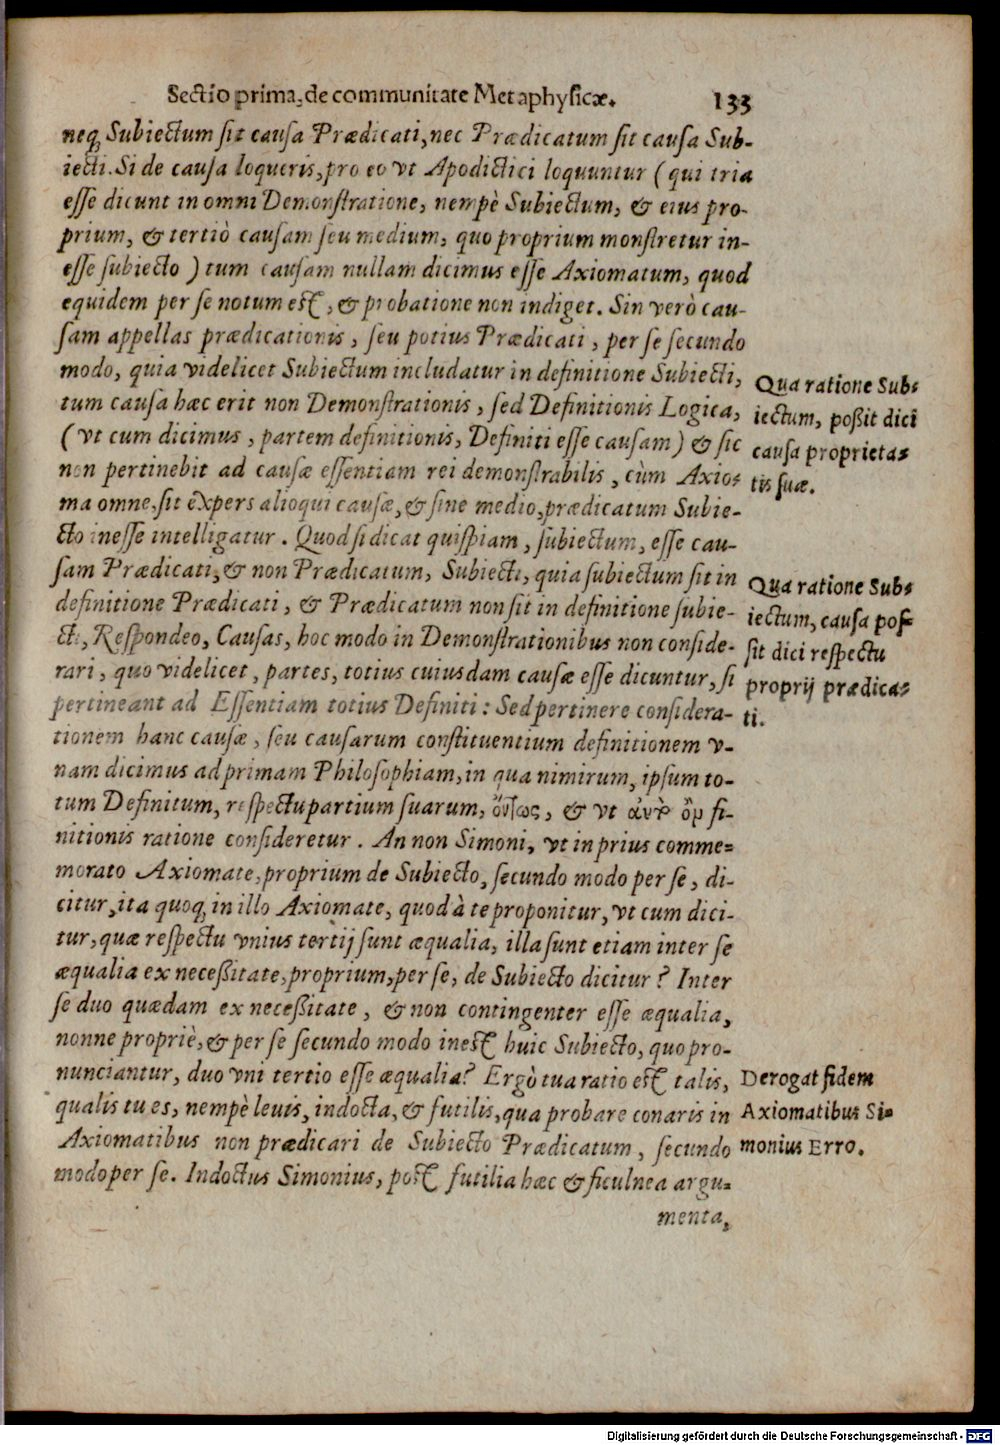 Sectio prima, de communitate Metaphysicæ. 133
neq; Subiectum sit causa Prædicati, nec Prædicatum sit causa Sub-
iecti. Si de causa loqueris, pro eo vt Apodictici loquuntur ( qui tria
esse dicunt in omni Demonstratione, nempè Subiectum, & eius pro-
prium, & tertiò causam seu medium, quo proprium monstretur in-
esse subiecto ) tum causam nullam dicimus esse Axiomatum, quod
equidem per se notum est, & probatione non indiget. Sin verò cau-
sam appellas prædicationis, seu potius Prædicati, per se secundo
modo, quia videlicet Subiectum includatur in definitione Subiecti,
tum causa hæc erit non Demonstrationis, sed Definitionis Logica,
(vt cum dicimus, partem definitionis, Definiti esse causam) & sic
non pertinebit ad causæ essentiam rei demonstrabilis, cùm Axio-
ma omne, sit expers alioqui causæ, & sine medio, prædicatum Subie-
cto inesse intelligatur. Quod si dicat quispiam, subiectum, esse cau-
sam Prædicati, & non Prædicatum, Subiecti, quia subiectum sit in
definitione Prædicati, & Prædicatum non sit in definitione subie-
cti, Respondeo, Causas, hoc modo in Demonstrationibus non conside-
rari, quo videlicet, partes, totius cuiusdam causæ esse dicuntur, si
pertineant ad Essentiam totius Definiti: Sed pertinere considera-
tionem hanc causæ, seu causarum constituentium definitionem v-
nam dicimus ad primam Philosophiam, in qua nimirum, ipsum to-
tum Definitum, respectu partium suarum, ὄντως, & vt ὂν fi-
nitionis ratione consideretur. An non Simoni, vt in prius comme-
morato Axiomate, proprium de Subiecto, secundo modo per se, di-
citur, ita quoq; in illo Axiomate, quod à te proponitur, vt cum dici-
tur, quæ respectu vnius tertij sunt æqualia, illa sunt etiam inter se
æqualia ex necessitate, proprium, per se, de Subiecto dicitur? Inter
se duo quædam ex necessitate, & non contingenter esse æqualia,
nonne propriè, & per se secundo modo inest huic Subiecto, quo pro-
nunciantur, duo vni tertio esse æqualia? Ergò tua ratio est talis,
qualis tu es, nempè leuis, indocta, & futilis, qua probare conaris in
Axiomatibus non prædicari de Subiecto Prædicatum, secundo
modo per se. Indoctus Simonius, post futilia hæc & ficulnea argu-
menta,
Qua ratione Sub-
iectum, possit dici
causa proprieta-
tis suæ.
Qua ratione Sub-
iectum, causa pos-
sit dici respectu
proprij prædica-
ti.
Derogat fidem
Axiomatibus Si-
monius Erro.
Digitalisierung gefördert durch die Deutsche Forschungsgemeinschaft - DFG